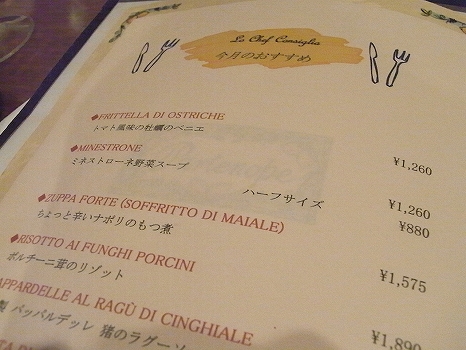 Lo Chef Consiglia
今月のおすすめ
◆FRITTELLA DI OSTRICHE
トマト風味の牡蠣のベニエ
¥1,260
◆MINESTRONE
ミネストローネ野菜スープ
¥1,260
ハーフサイズ ¥880
◆ZUPPA FORTE (SOFFRITTO DI MAIALE)
ちょっと辛いナポリのもつ煮
¥1,575
◆RISOTTO AI FUNGHI PORCINI
ポルチーニ茸のリゾット
¥1,890
APPARDELLE AL RAGÙ DI CINGHIALE
製 パッパルデッレ 猪のラグーソ